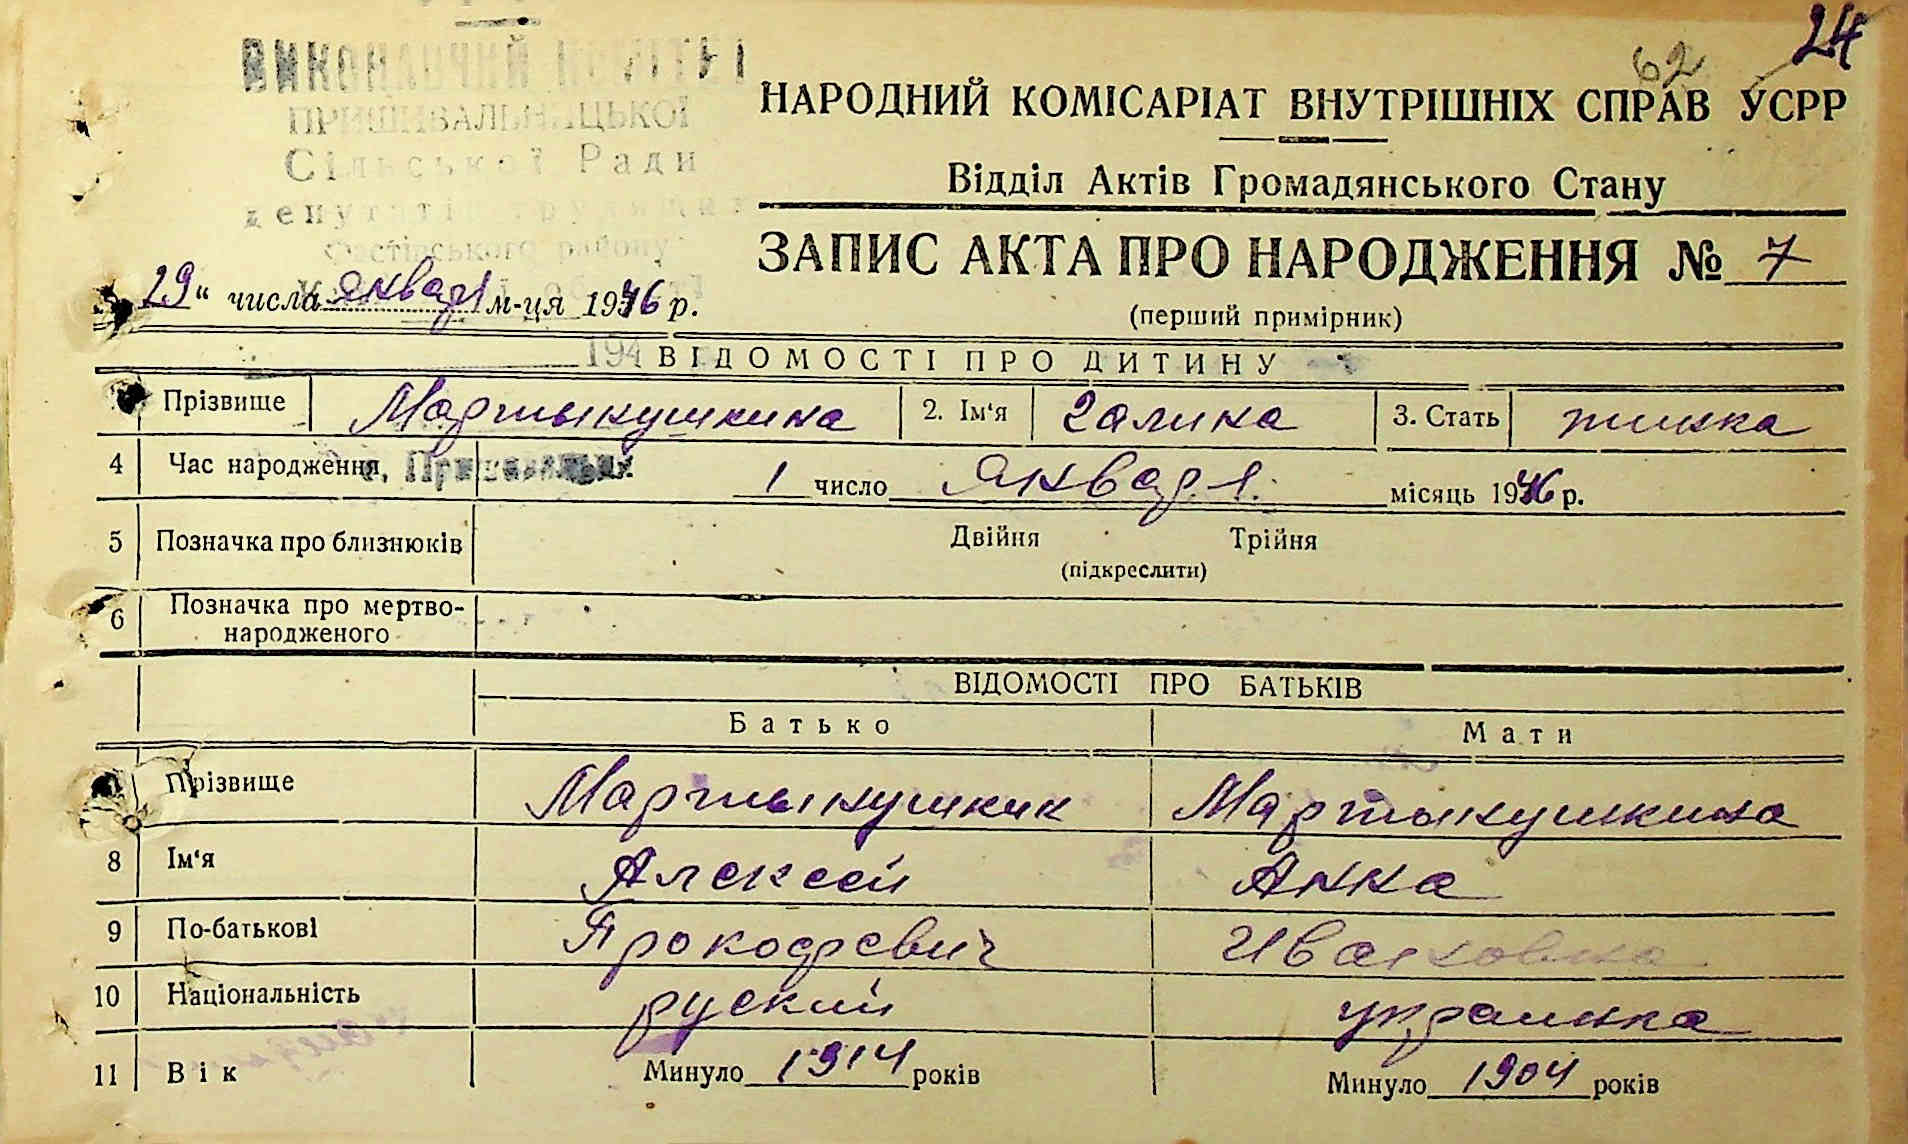 24
62
ВИКОНАВЧИЙ КОМІТЕТ
ПРИШИВАЛЬНИЦЬКОЇ
Сільської Ради
депутатів трудящих
Фастівського району
НАРОДНИЙ КОМІСАРІАТ ВНУТРІШНІХ СПРАВ УСРР
Відділ Актів Громадянського Стану
ЗАПИС АКТА ПРО НАРОДЖЕННЯ № 7
(перший примірник)
29 " числа январ м-ця 1946 р.
194
ВІДОМОСТІ ПРО ДИТИНУ
Прізвище Мартынушкина 2. Ім'я Галина 3. Стать жинка
4 Час народження 1 число января місяць 1946 р.
5 Позначка про близнюків Двійня Трійня
(підкреслити)
6 Позначка про мертво-
народженого
ВІДОМОСТІ ПРО БАТЬКІВ
Батько Мати
Прізвище Мартынушкин Мартынушкина
8 Ім'я Алексей Анна
9 По-батькові Прокофевич Ивановна
10 Національність руский украинка
11 Вік Минуло 1914 років Минуло 1904 років